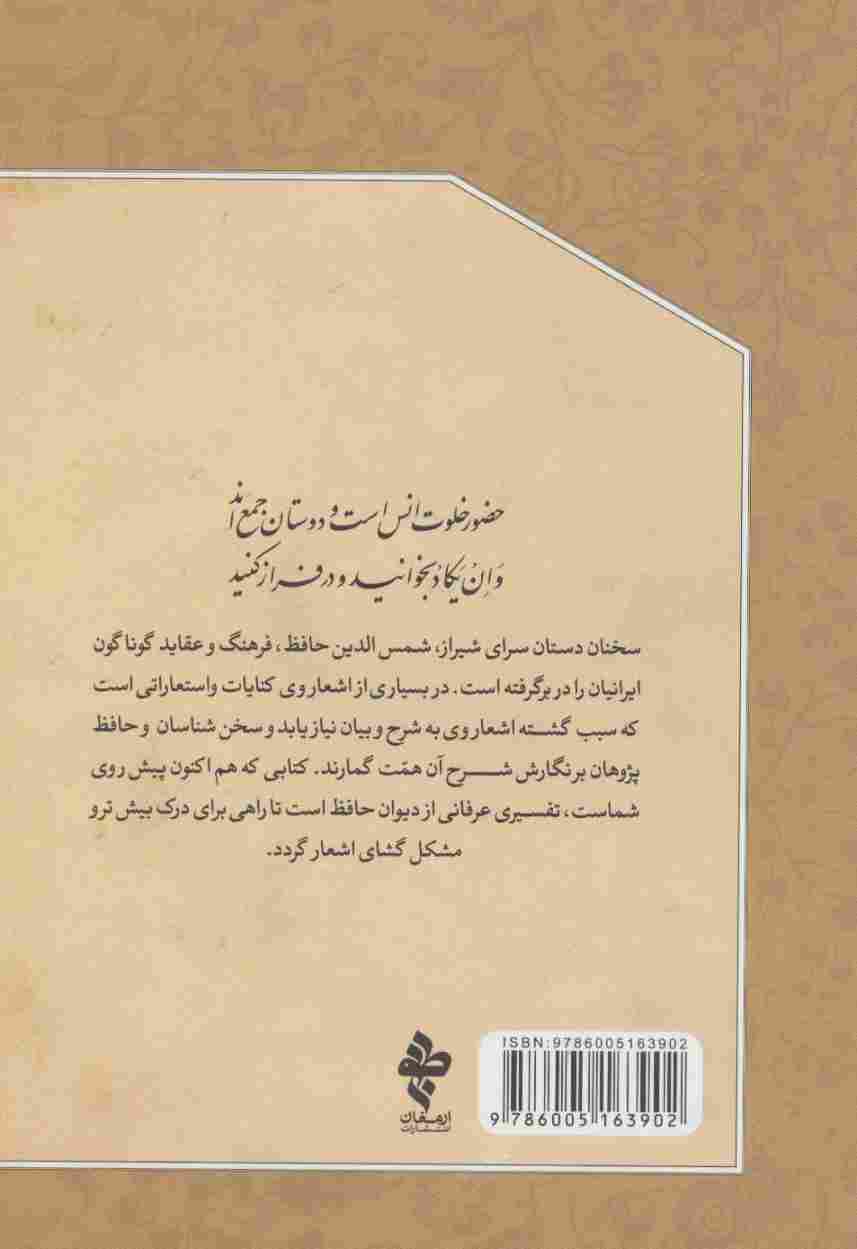 حضور خلوت انس است و دوستان جمع اند
وَاِنْ یَکادُ بخوانید و در فراز کنید
سخنان دستان سرای شیراز، شمس الدین حافظ، فرهنگ و عقاید گوناگون
ایرانیان را در برگرفته است. در بسیاری از اشعار وی کنایات و استعاراتی است
که سبب گشته اشعار وی به شرح و بیان نیاز یابد و سخن شناسان و حافظ
پژوهان بر نگارش شرح آن همّت گمارند. کتابی که هم اکنون پیش روی
شماست، تفسیری عرفانی از دیوان حافظ است تا راهی برای درک بیش تر و
مشکل گشای اشعار گردد.
ISBN:9786005163902
9 786005 163902
ارمغان
انتشارات